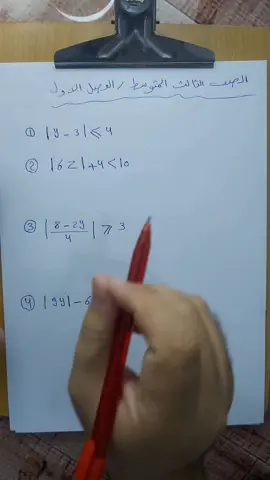 الصف الثالث المتوسط / الفصل الاول
① |y - 3| ⩽ 4
② |6z| + 4 < 10
③ |8 - 2y / 4| ⩾ 3
④ |9y| - 6